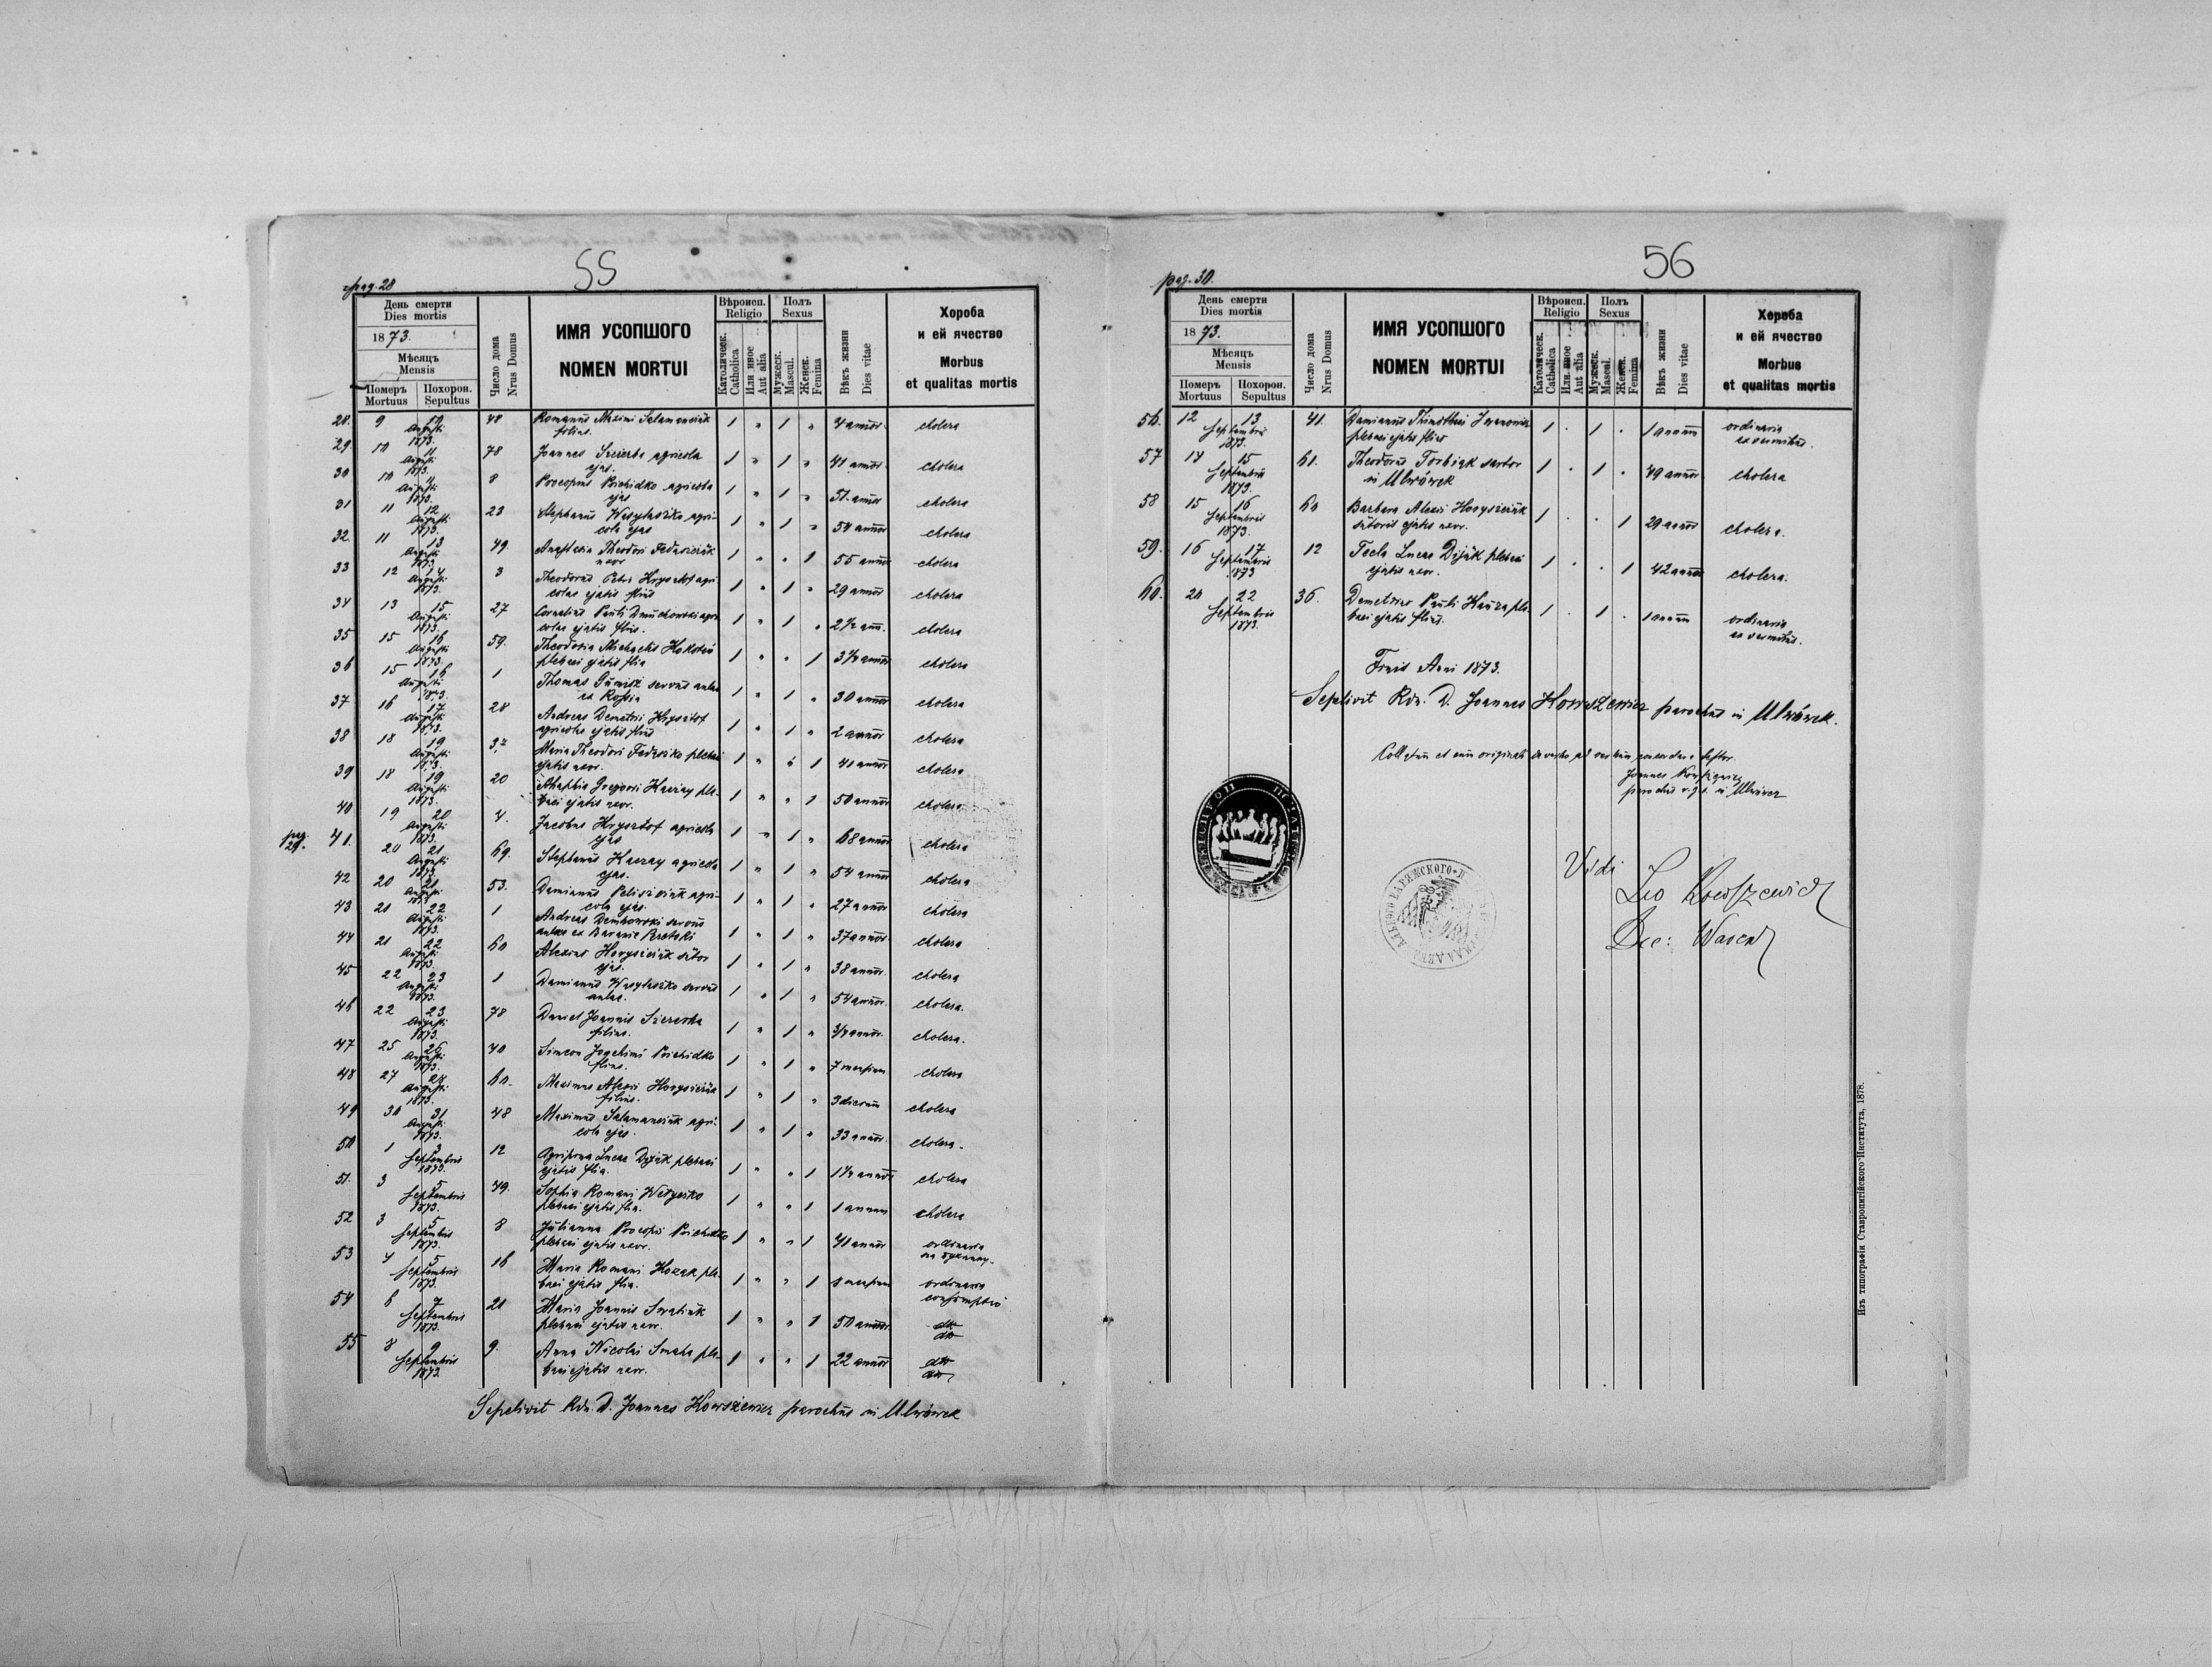 pag. 28
55
День смерти
Dies mortis
1873.
Мѣсяцъ
Mensis
Померъ
Mortuus
Похорон.
Sepultus
Число дома
Nrus Domus
ИМЯ УСОПШОГО
NOMEN MORTUI
Вѣроисп.
Religio
Католическ.
Catholica
Или иное
Aut alia
Полъ
Sexus
Мужеск.
Mascul.
Женск.
Femina
Вѣкъ жизни
Dies vitae
Хороба
и ей ячество
Morbus
et qualitas mortis
28. 9 Augusti 1873. 48 Romanus Maximi Salamanciuk filius. 1 " 1 " annor cholera
29. 10 11 Augusti 1873. 78 Joannes Szczerba agricola ejas. 1 " 1 " 41 annor cholera
30 10 11 Augusti 1873. 8 Procopius Prichidko agricola ejas 1 " 1 " 51 annor cholera
31 11 12 Augusti 1873. 23 Stephanus Wasylaszko agricola ejas 1 " 1 " 54 annor cholera
32. 11 13 Augusti 1873 49. Anastasia Theodori Fedasiczuk uxor 1 " " 1 55 annor cholera
33 12 14 Augusti 1873. 3 Theodorus Petri Hrysztof agricolae ejatis filius 1 " 1 " 29 annor cholera
34 13 15 Augusti 1873. 27 Cornelius Pauli agricolae ejatis filius. 1 " 1 " 2½ ann. cholera
35 15 16 Augusti 1873. 59. Theodosia Michaelis plebaei ejatis filia 1 " " 1 3½ annor cholera
36 15 16 Augusti 1873. 1 Thomas servus aulae ex Rossia 1 " 1 " 30 annor cholera
37 16 17 Augusti 1873. 28 Andreas Demetrii Hrysztof agricolae ejatis filius 1 " 1 " 2 annor cholera
38 18 19 Augusti 1873. Maria Theodori Fedaszko plebaei ejatis uxor. 1 " " 1 41 annor cholera
39 18 19 Augusti 1873. 20 Gregorii Kuzray plebaei ejatis uxor. 1 " " 1 50 annor cholera
40 19 20 Augusti 1873. 4. Jacobus Hrysztof agricola ejas 1 " 1 " 68 annor cholera
pag. 29. 41. 20 21 Augusti 1873. 69. Stephanus Kuzray agricola ejas. 1 " 1 " 54 annor cholera
42 20 21 Augusti 1873 53. Damianus agricola ejas. 1 " 1 " 27 annor cholera
43 21 22 Augusti 1873. 1 Andreas Dembowski servus aulae ex 1 " 1 " 37 annor cholera
44 21 22 Augusti 1873. 60 Alexius Horysiczuk sutor ejas. 1 " 1 " 38 annor. cholera
45 22 23 Augusti 1873. 1 Damianus Wasylaszko servus aulae. 1 " 1 " 54 annor. cholera.
46 22 23 Augusti 1873. 78 Daniel Joannis Szczerba filius. 1 " 1 " 3/4 annor. cholera.
47 25 26 Augusti 1873. 40 Simeon Joachimi Prichidko filius. 1 " 1 " 7 mensium cholera
48 27 28 Augusti 1873. 60. Maximus Alexii Horysiczuk filius. 1 " 1 " 3 dierum cholera
49 30 31 Augusti 1873. 48 Maximus Salamanciuk agricola ejas. 1 " 1 " 33 annor. cholera.
50 1 3 Septembris 1873. 12 Agripina Lucae Dyjak plebaei ejatis filia. 1 " " 1 annor cholera
51. 3 5 Septembris 1873. 49. Sophia Romani plebaei ejatis filia. 1 " " 1 1 annum cholera
52 3 5 Septembris 1873. 8 Julianna Procopii Prichidko plebaei ejatis uxor. 1 " " 1 41 annor ordinaria
53 4 5 Septembris 1873. 16 Maria Romani Kozak plebaei ejatis filia. 1 " " 1 mensium ordinaria consumptio
54 6 7 Septembris 1873. 21 Maria Joannis plebaei ejatis uxor. 1 " " 1 50 annor dto dto
55 8 9 Septembris 1873. 9. Anna Nicolai plebaei ejatis uxor. 1 " " 1 22 annor dto dto
Sepelivit Rdn. D. Joannes Kowszewicz parochus in Ulwówek
pag. 30.
56
День смерти
Dies mortis
1873.
Мѣсяцъ
Mensis
Померъ
Mortuus
Похорон.
Sepultus
Число дома
Nrus Domus
ИМЯ УСОПШОГО
NOMEN MORTUI
Вѣроисп.
Religio
Католическ.
Catholica
Или иное
Aut alia
Полъ
Sexus
Мужеск.
Mascul.
Женск.
Femina
Вѣкъ жизни
Dies vitae
Хороба
и ей ячество
Morbus
et qualitas mortis
56. 12 13 Septembris 1873. 41. Damianus Thimothei plebaei ejatis filius 1 . 1 . 1 annum ordinaria ex vermibus.
57 14 15 Septembris 1873. 61. Theodorus Torbiak sartor in Ulwówek 1 . 1 . 49 annor cholera
58 15 16 Septembris 1873. 60 Barbara Alexii Horysiczuk sutoris ejatis uxor. 1 . . 1 29 annor cholera.
59. 16 17 Septembris 1873 12 Tecla Lucae Dyjak plebaei ejatis uxor. 1 . . 1 42 annor cholera.
60. 20 22 Septembris 1873. 36. Demetrius Pauli plebaei ejatis filius. 1 . 1 . 1 annum ordinaria ex vermibus.
Finis Anni 1873.
Sepelivit Rdn. D. Joannes Kowszewicz parochus in Ulwówek.
Collatum et cum originali de verbo ad verbum concordare testor.
Joannes Kowszewicz
parochus r. g. c. in Ulwówek
Vidi
Leo Kowszewicz
Dec:
Изъ типографіи Ставропигійского Института, 1878.